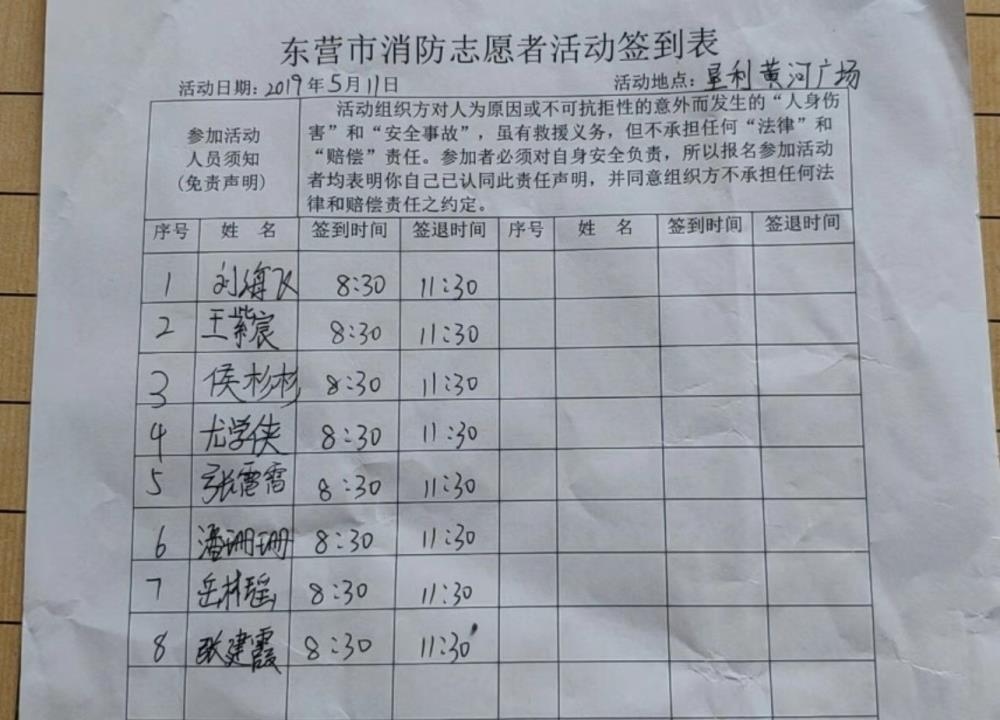 东营市消防志愿者活动签到表
活动日期：2019年5月11日 活动地点：垦利黄河广场
参加活动
人员须知
(免责声明)
活动组织方对人为原因或不可抗拒性的意外而发生的“人身伤
害”和“安全事故”，虽有救援义务，但不承担任何“法律”和
“赔偿”责任。参加者必须对自身安全负责，所以报名参加活动
者均表明你自己已认同此责任声明，并同意组织方不承担任何法
律和赔偿责任之约定。
序号 姓 名 签到时间 签退时间 序号 姓 名 签到时间 签退时间
1 刘海飞 8:30 11:30
2 王紫宸 8:30 11:30
3 侯杉杉 8:30 11:30
4 尤学侠 8:30 11:30
5 张雷雷 8:30 11:30
6 潘珊珊 8:30 11:30
7 岳林瑶 8:30 11:30
8 张建霞 8:30 11:30